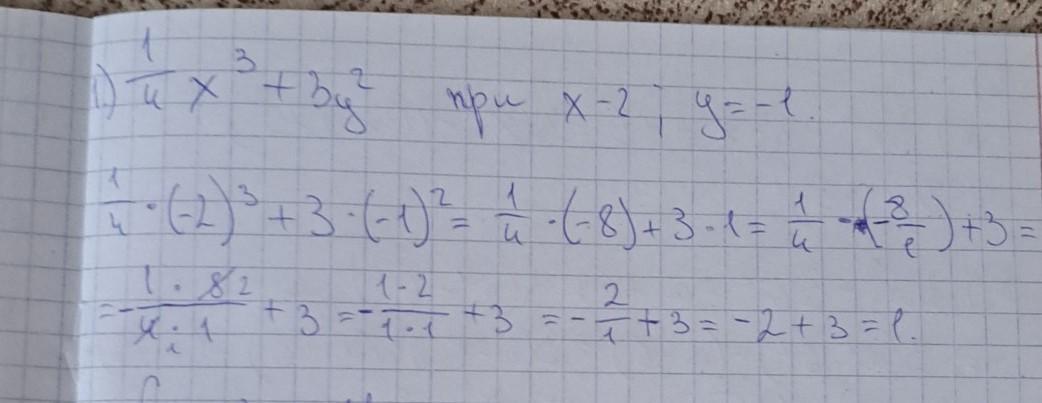 1) 1/4 x³ + 3y² при x-2; y=-1.
1/4 · (-2)³ + 3 · (-1)² = 1/4 · (-8) + 3 · 1 = 1/4 · (-8/1) + 3 =
= - 1·8 2/4·1 1 + 3 = - 1·2/1·1 + 3 = - 2/1 + 3 = -2 + 3 = 1.